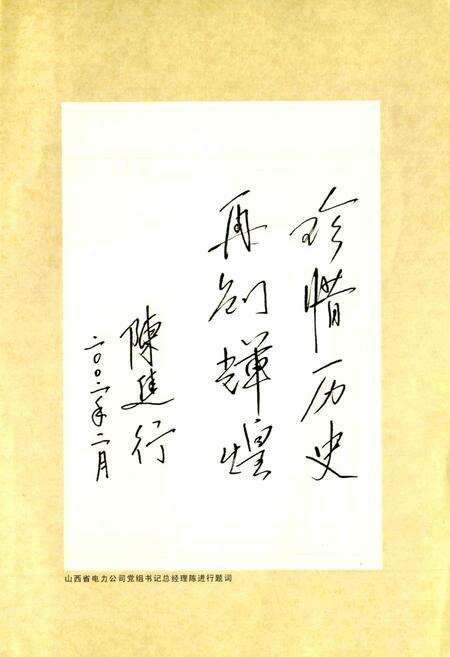 珍惜历史
再创辉煌
陳進行
二〇〇二年二月
山西省电力公司党组书记总经理陈进行题词